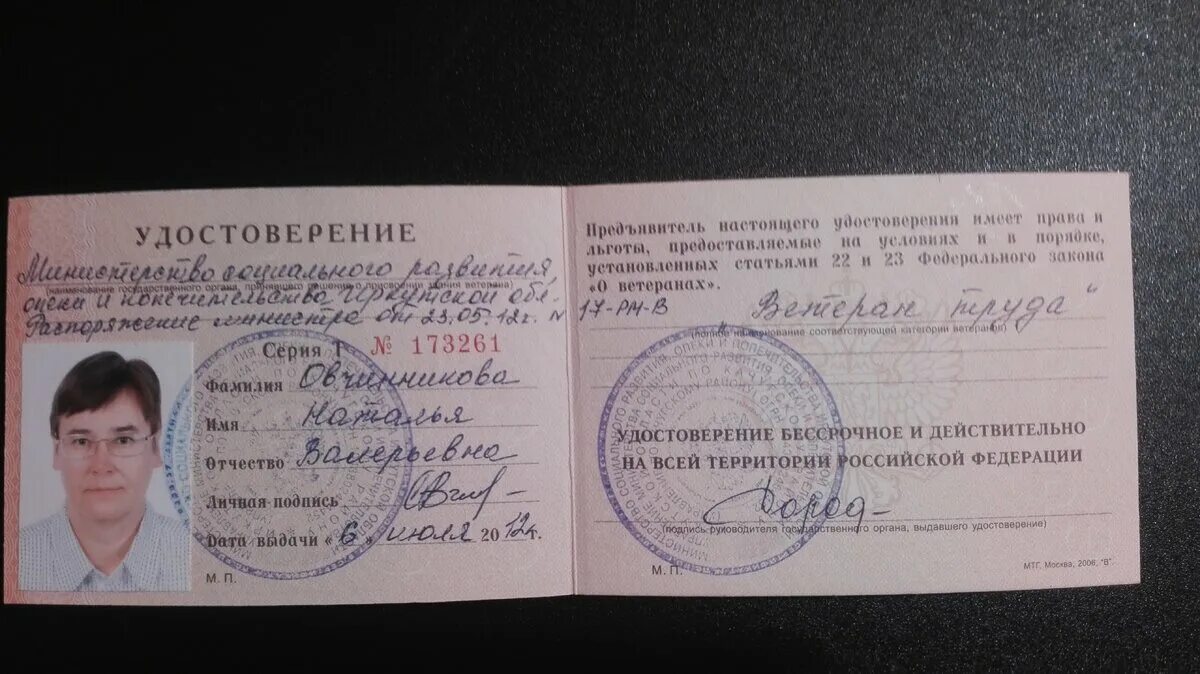 УДОСТОВЕРЕНИЕ
Министерство социального развития,
(наименование государственного органа, принявшего решение о присвоении звания ветерана)
опеки и попечительства Иркутской обл.
Распоряжение министра от 23.05.12г. N
Серия Г № 173261
Фамилия Овчинникова
Имя Наталья
Отчество Валерьевна
Личная подпись
Дата выдачи « 6 » июля 2012г.
М. П.
Предъявитель настоящего удостоверения имеет права и
льготы, предоставляемые на условиях и в порядке,
установленных статьями 22 и 23 Федерального закона
«О ветеранах».
17-РМ-В Ветеран труда"
(полное наименование соответствующей категории ветеранов)
УДОСТОВЕРЕНИЕ БЕССРОЧНОЕ И ДЕЙСТВИТЕЛЬНО
НА ВСЕЙ ТЕРРИТОРИИ РОССИЙСКОЙ ФЕДЕРАЦИИ
(подпись руководителя государственного органа, выдавшего удостоверение)
М. П.
МТГ, Москва, 2006, "В".